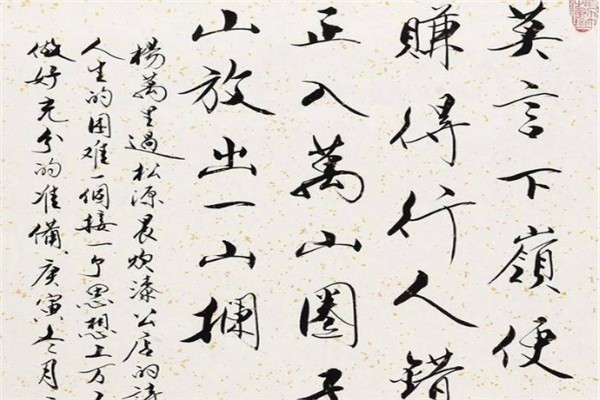 莫言下嶺便
賺得行人錯
正入萬山圈子
山放出一山攔
楊萬里過松源晨炊漆公店的詩
人生的困难一個接一个思想上万
做好充分的准備庚寅冬月